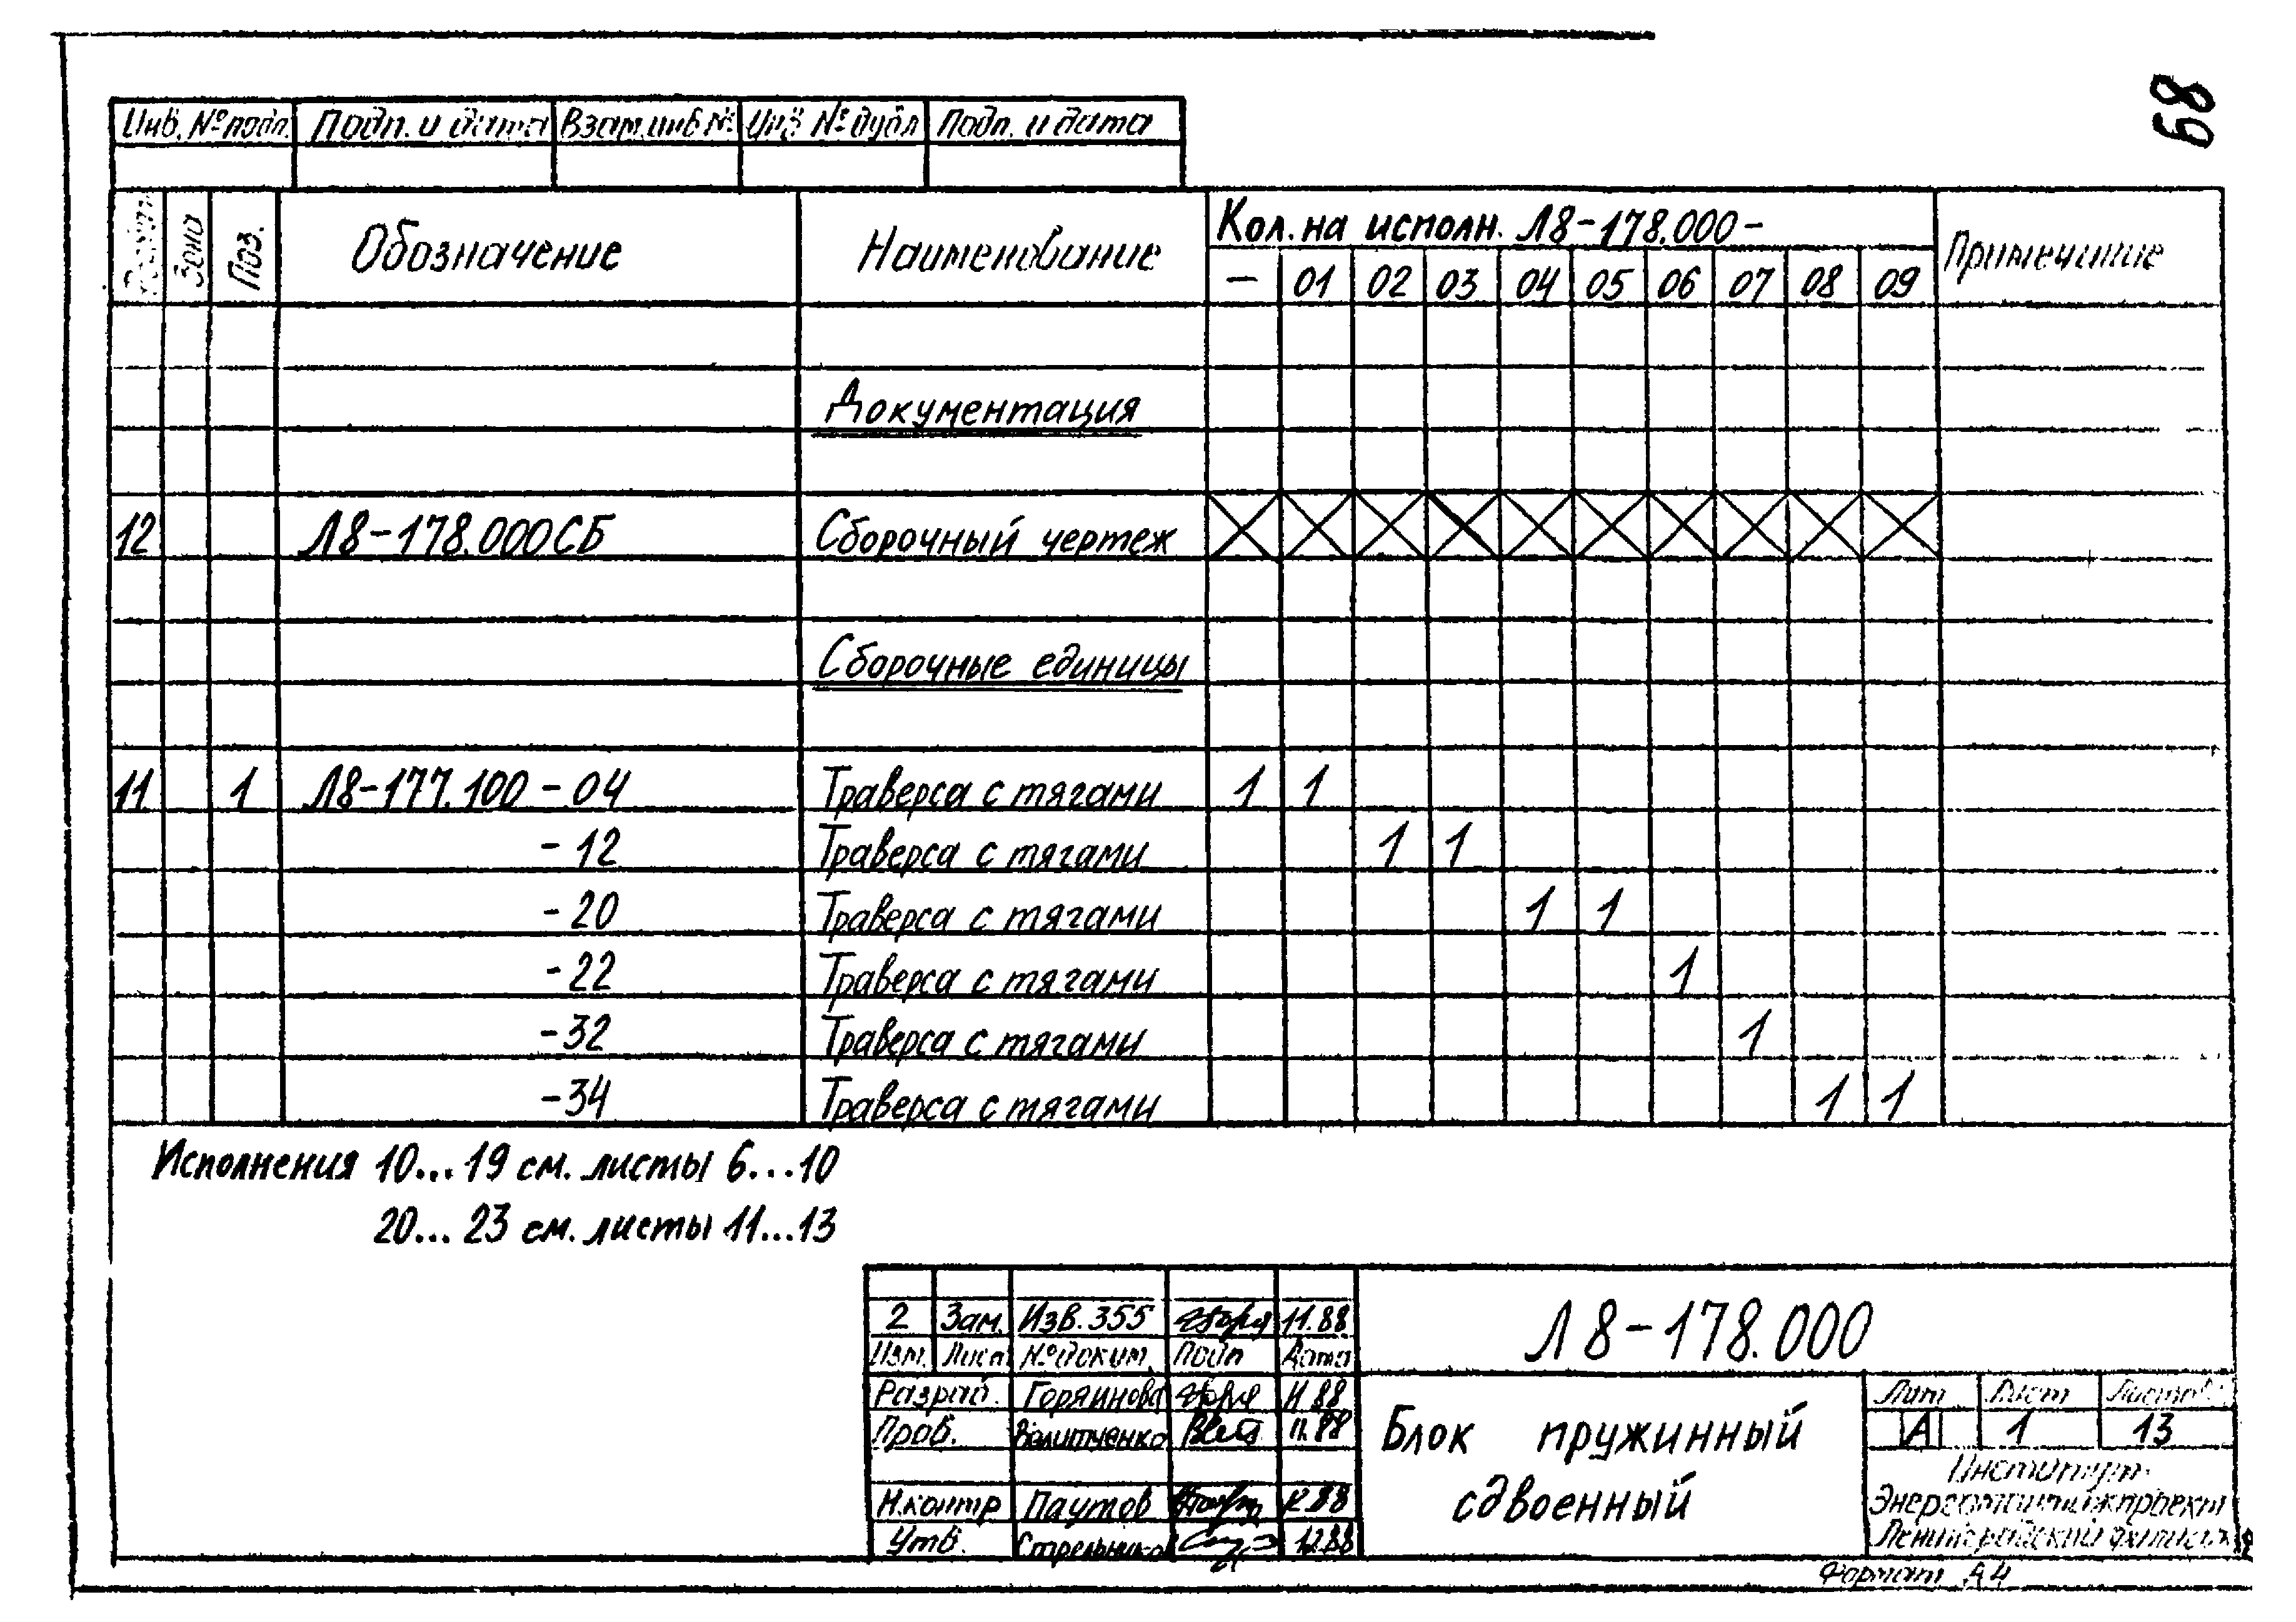 68
Инв. № подл. Подп. и дата Взам. инв № Инв № дубл Подп. и дата
Формат Зона Поз. Обозначение Наименование Кол. на исполн. Л8-178.000- Примечание
— 01 02 03 04 05 06 07 08 09
Документация
12 Л8-178.000СБ Сборочный чертеж
Сборочные единицы
11 1 Л8-177.100-04 Траверса с тягами 1 1
-12 Траверса с тягами 1 1
-20 Траверса с тягами 1 1
-22 Траверса с тягами 1
-32 Траверса с тягами 1
-34 Траверса с тягами 1 1
Исполнения 10...19 см. листы 6...10
20...23 см. листы 11...13
2 Зам. Изв. 355 11.88
Изм. Лист № докум. Подп Дата
Л8-178.000
Разраб. Горяинова 11 88
Пров. 11.88
Н.контр Паутов 12 88
Утв. 12.88
Блок пружинный
сдвоенный
Лит Лист Листов
А 1 13
Институт
Энергомонтажпроект
Ленинградский филиал
Формат А4